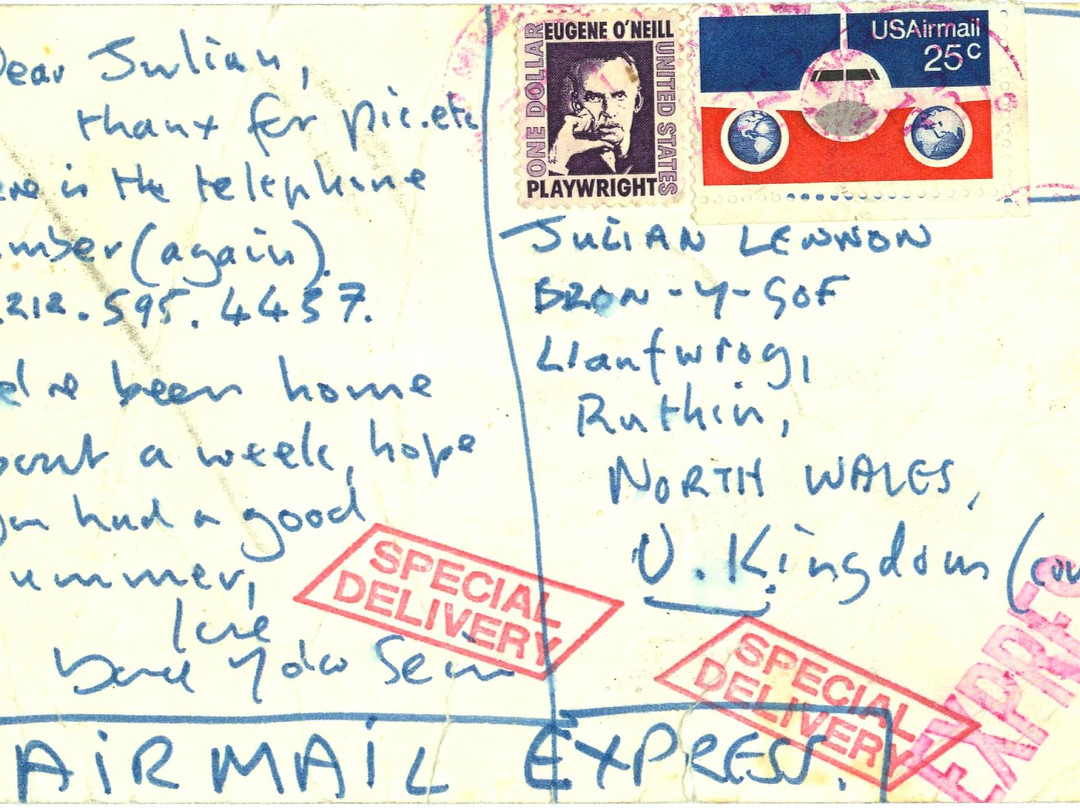 Dear Julian,
thanx for pic.etc
ere is the telephone
umber(again).
.212.595.4437.
e've been home
bout a week, hope
you had a good
ummer,
love
Dad Yoko Sean
AiRMAiL EXPRESS.
EUGENE O'NEILL
ONE DOLLAR
UNITED STATES
PLAYWRIGHT
USAirmail
25c
JULIAN LENNON
BRON-Y-GOF
Llanfwrog,
Ruthin,
NORTH WALES,
U. Kingdom (
SPECIAL
DELIVERY
SPECIAL
DELIVERY
EXPRES